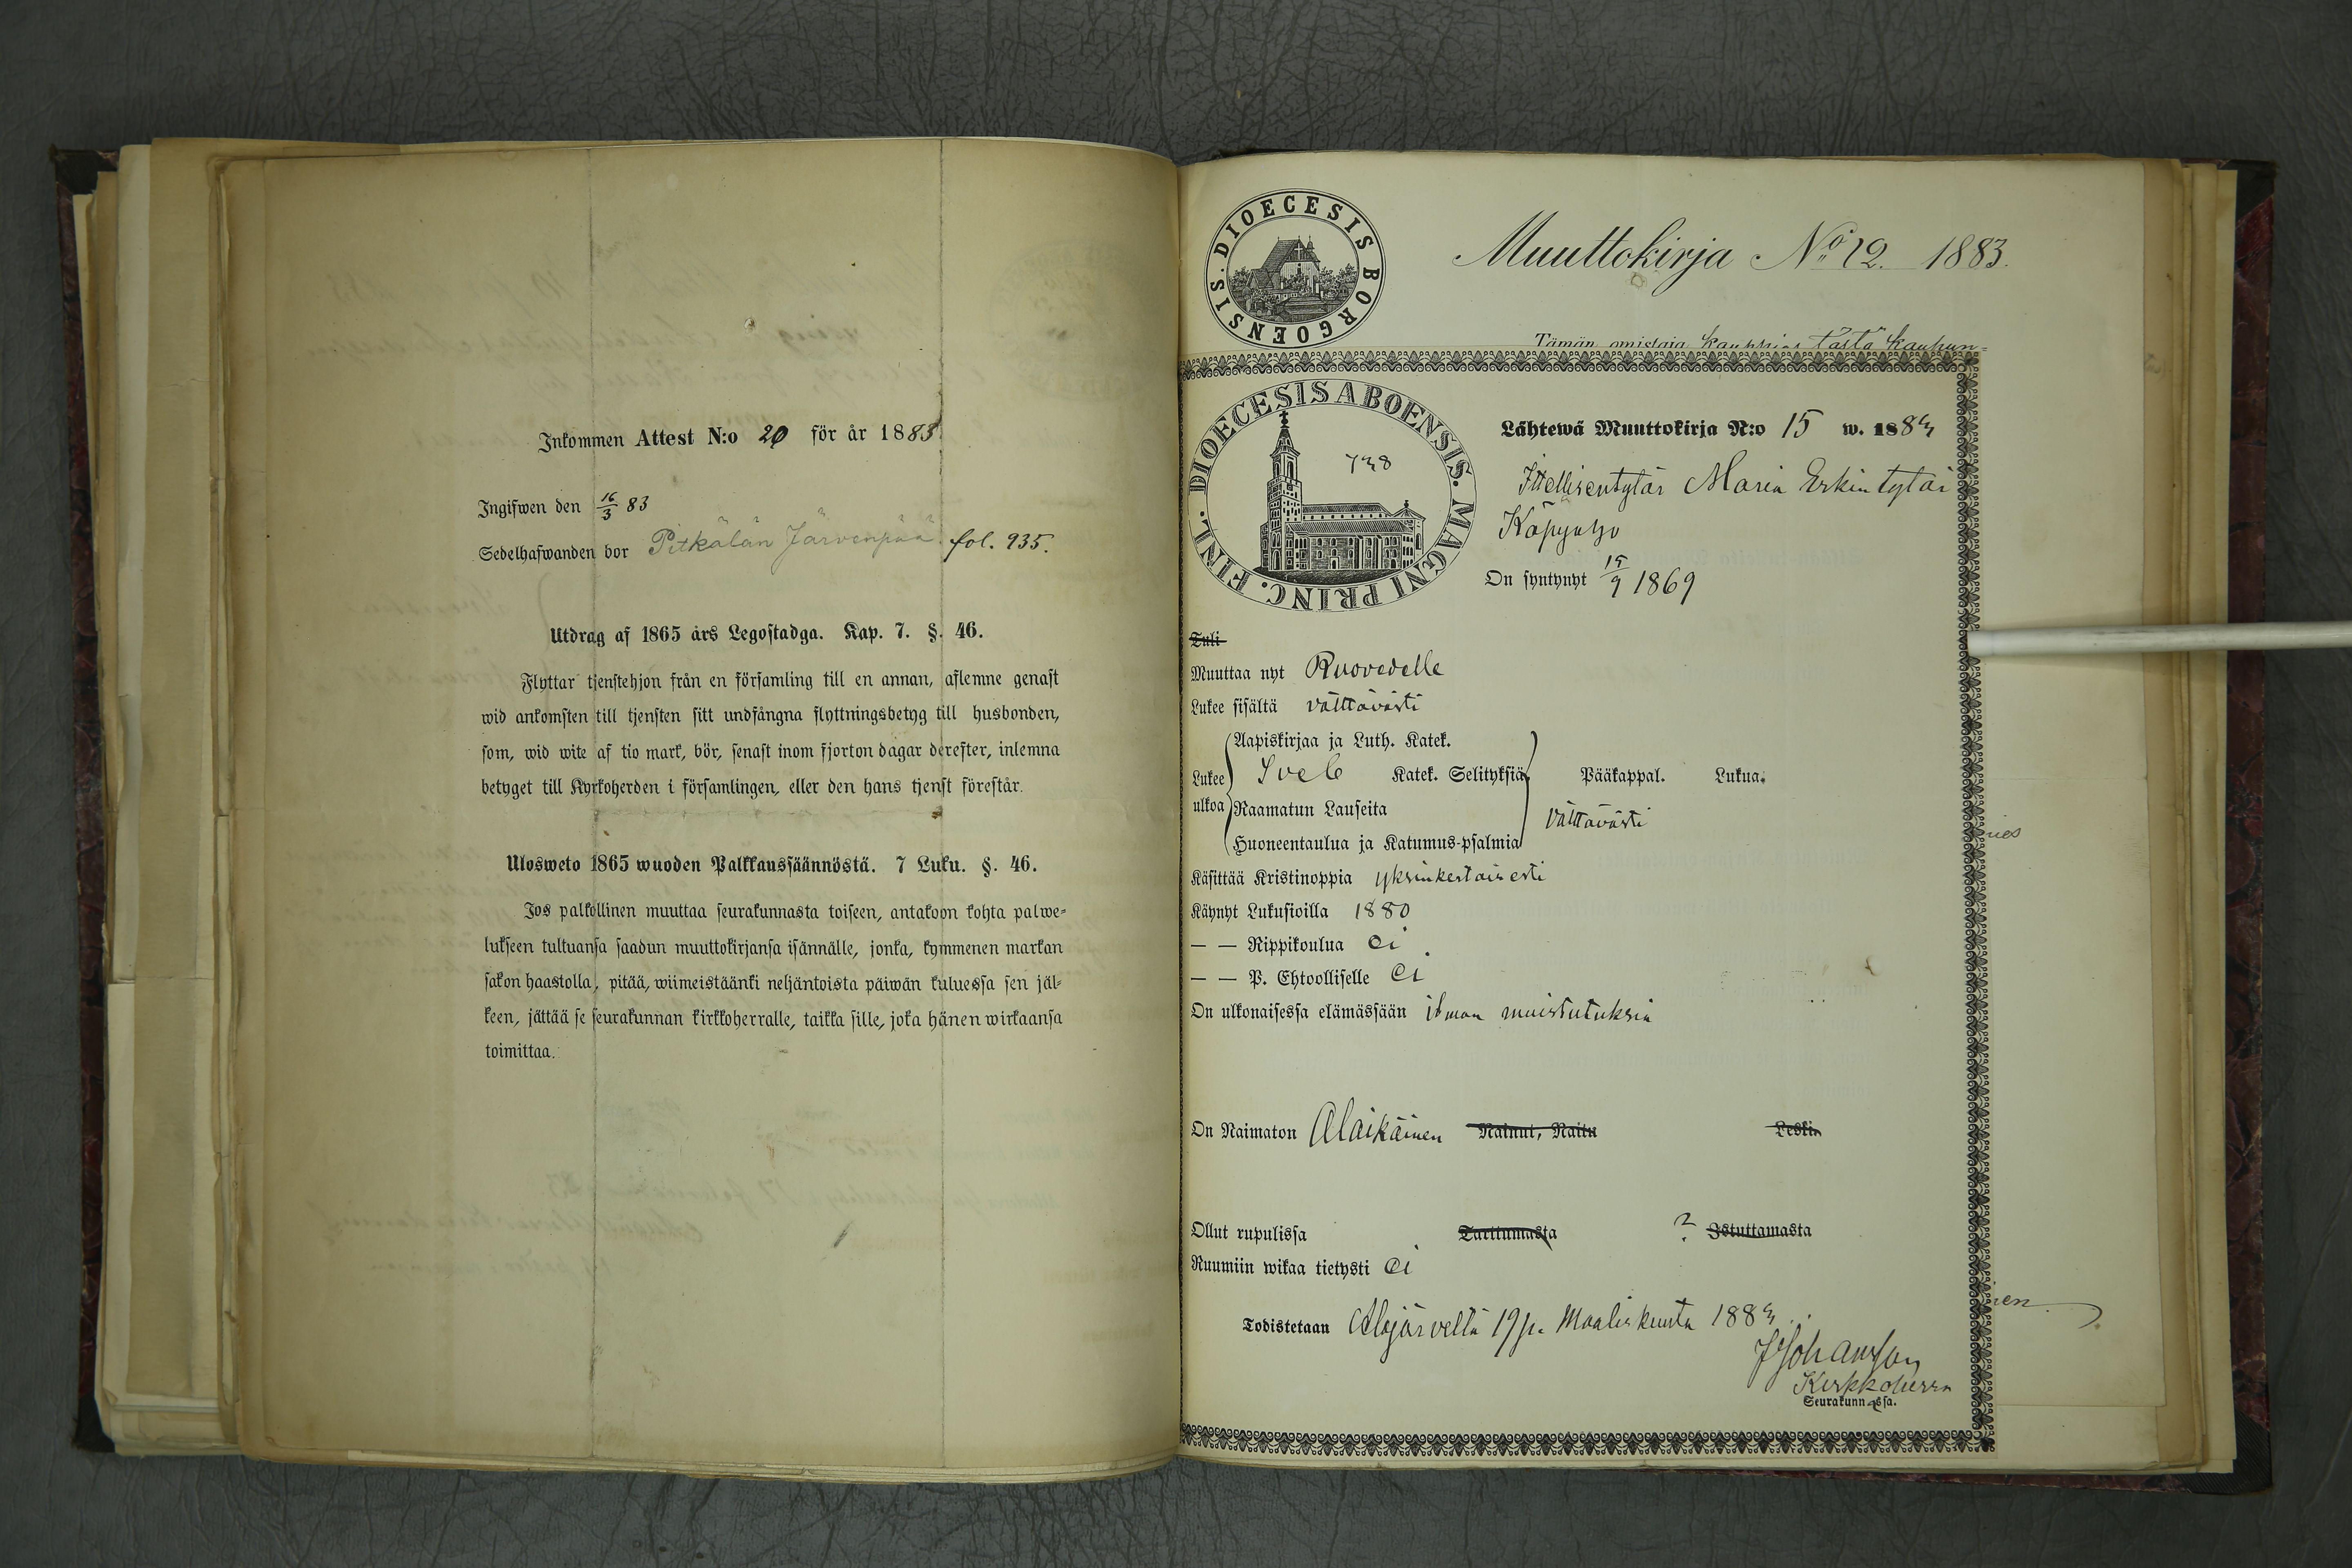 Inkommen Attest N:o 20 för år 1883
Ingifwen den 16/3 83
Sedelhafwanden bor Pitkälän Järvenpää fol. 935.
Utdrag af 1865 års Legostadga. Kap. 7. §. 46.
Flyttar tjenstehjon från en församling till en annan, aflemne genast
wid ankomsten till tjensten sitt undfångna flyttningsbetyg till husbonden,
som, wid wite af tio mark, bör, senast inom fjorton dagar derefter, inlemna
betyget till Kyrkoherden i församlingen, eller den hans tjenst förestår.
Ulosweto 1865 wuoden Palkkaussäännöstä. 7 Luku. §. 46.
Jos palkollinen muuttaa seurakunnasta toiseen, antakoon kohta palwe-
lukseen tultuansa saadun muuttokirjansa isännälle, jonka, kymmenen markan
sakon haastolla, pitää, wiimeistäänki neljäntoista päiwän kuluessa sen jäl-
keen, jättää se seurakunnan kirkkoherralle, taikka sille, joka hänen wirkaansa
toimittaa.
DIOECESIS BORGOENSIS.
Muuttokirja No 12. 1883.
Tämän omistaja kauppias tästä kaupun-
DIOECESIS ABOENSIS. MAGNI PRINC. FINL.
738
Lähtewä Muuttokirja N:o 15 w. 1883
Itellisentytär Maria Erkintytär
Käpyaho
On syntynyt 15/9 1869
Tuli
Muuttaa nyt Ruovedelle
Lukee sisältä välttävästi
Aapiskirjaa ja Luth. Katek.
Lukee ulkoa Sveb Katek. Selityksiä Pääkappal. Lukua.
Raamatun Lauseita välttävästi
Huoneentaulua ja Katumus-psalmia
Käsittää Kristinoppia yksinkertaisesti
Käynyt Lukusioilla 1880
— — Rippikoulua ei
— — P. Ehtoolliselle ei
On ulkonaisessa elämässään ilman muistutuksia
On Naimaton Alaikäinen Nainut, Naitu Leski
Ollut rupulissa Tarttumasta ? Istuttamasta
Ruumiin wikaa tietysti ei
Todistetaan Alajärveltä 19 p. Maaliskuuta 1883.
Johansson
Kirkkoherra
Seurakunnassa.